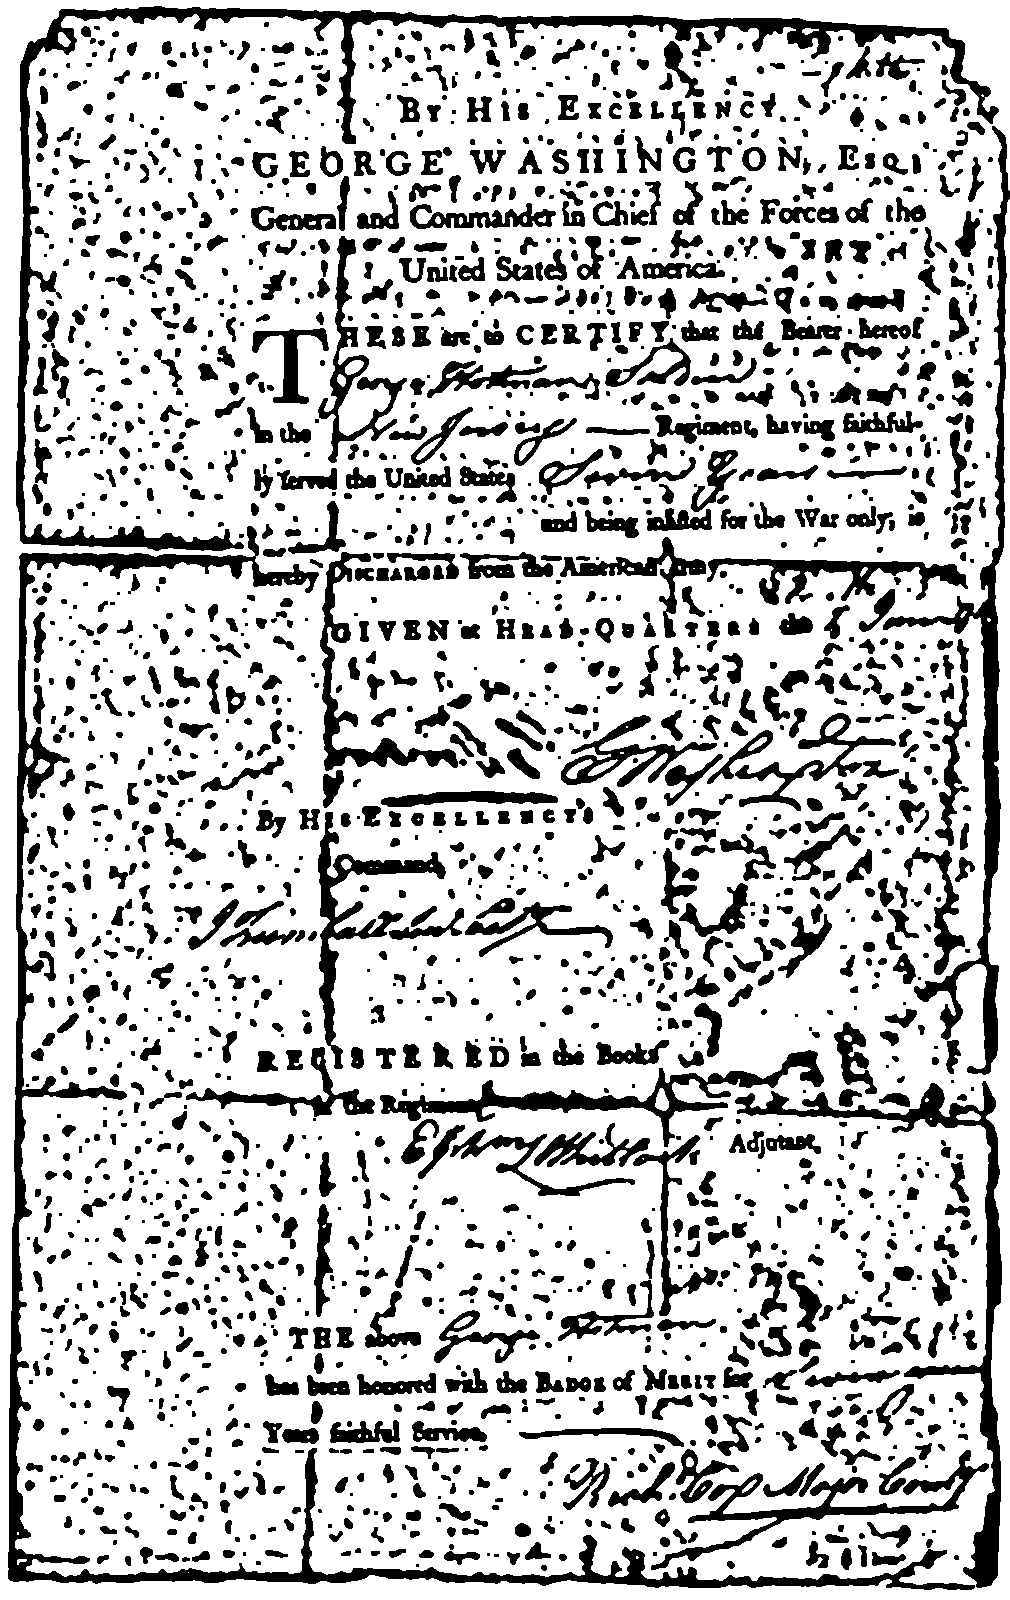 By His Excellency
GEORGE WASHINGTON, Esq;
General and Commander in Chief of the Forces of the
United States of America.
THESE are to CERTIFY that the Bearer hereof
George Hottman, Soldier
in the New Jersey Regiment, having faithful-
ly served the United States Seven Years
and being inlisted for the War only, is
hereby Discharged from the American Army.
GIVEN at Head-Quarters the
G Washington
By His Excellency's
Command,
J Trumbull
REGISTERED in the Books
of the Regiment,
Whitlock Adjutant,
THE above George Hotman
has been honored with the Badge of Merit for Seven
Years faithful Service.
Rich.d Cox Major